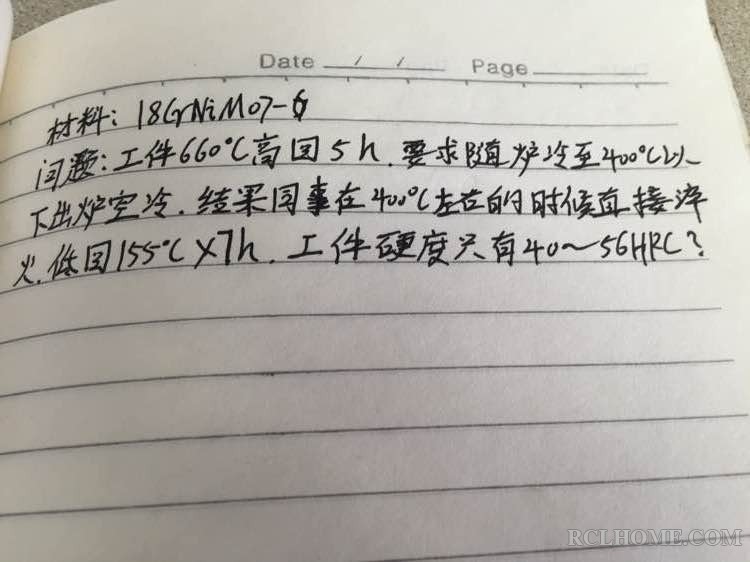 Date / / Page
材料：18CrNiMo7-6
问题：工件660℃高回5h，要求随炉冷至400℃以
下出炉空冷，结果同事在400℃左右的时候直接淬
火，低回155℃×7h，工件硬度只有40～56HRC？
RCLHOME.COM